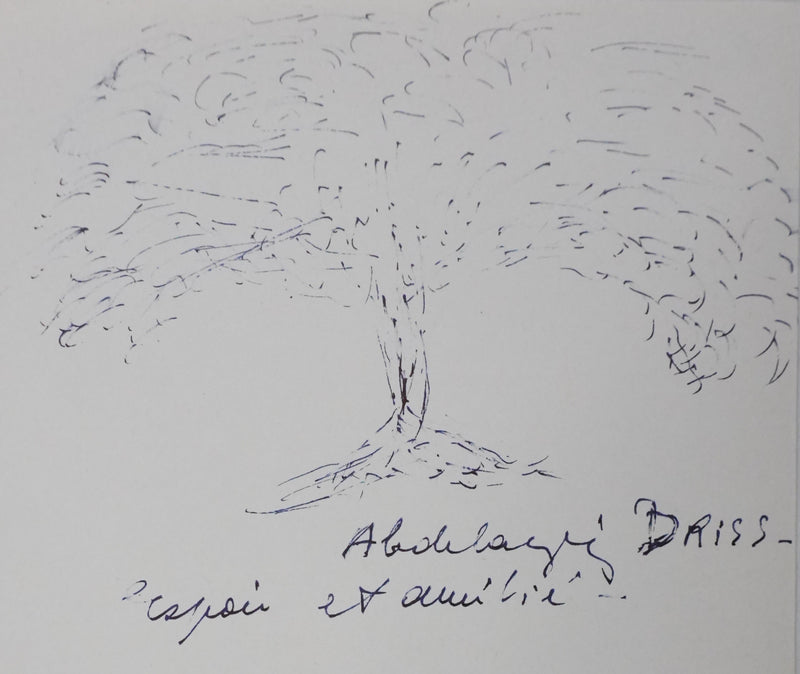 Abdelazziz DRISS -
"espoir et amitié" -